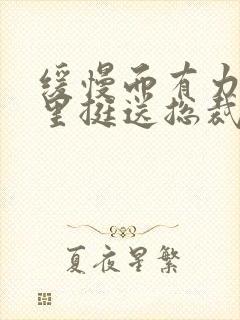 缓慢而有力
里挺送总裁
夏夜星繁